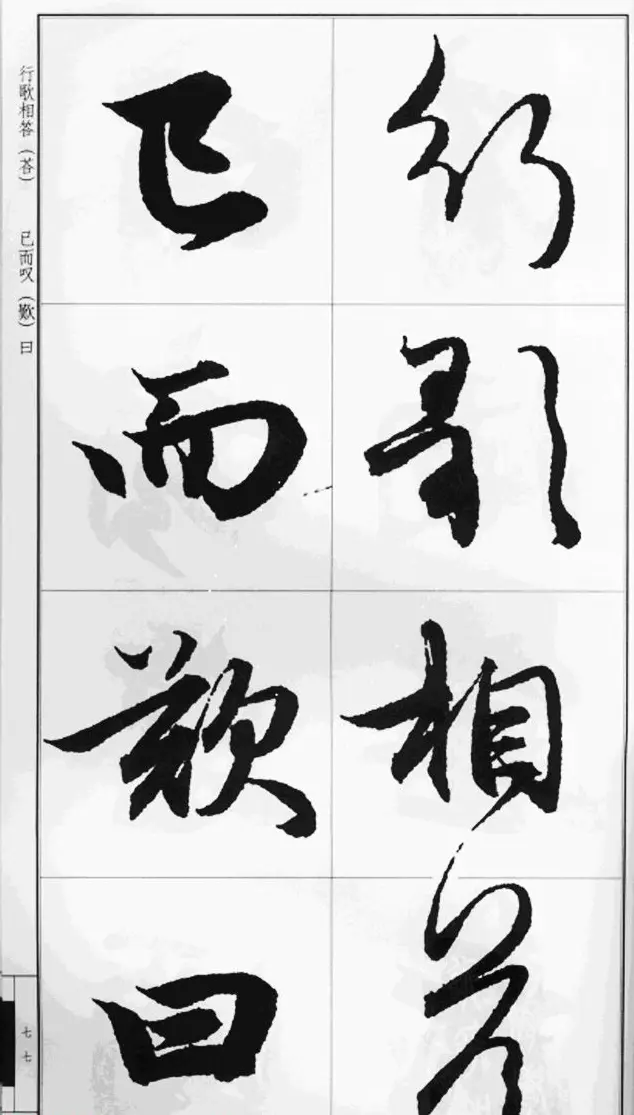 行歌相答
已而歎曰
行歌相答（荅） 已而叹（歎）曰
七七